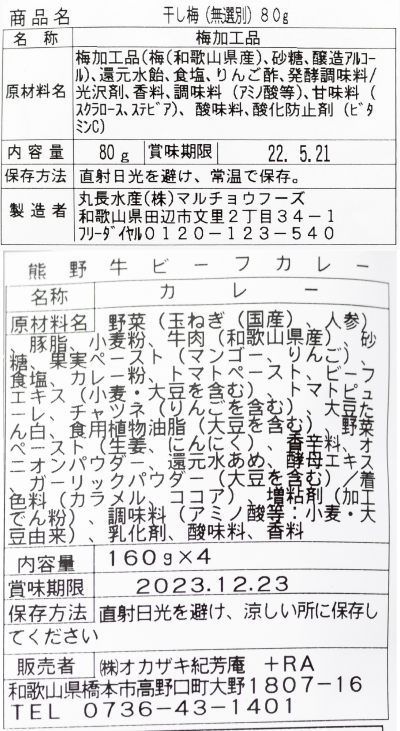 商品名 干し梅(無選別)80g
名称 梅加工品
原材料名 梅加工品(梅(和歌山県産)、砂糖、醸造ｱﾙｺｰ
ﾙ)、還元水飴、食塩、りんご酢、発酵調味料/
光沢剤、香料、調味料(アミノ酸等)、甘味料(
ｽｸﾗﾛｰｽ、ｽﾃﾋﾞｱ)、酸味料、酸化防止剤(ﾋﾞﾀ
ﾐﾝC)
内容量 80g 賞味期限 22. 5.21
保存方法 直射日光を避け、常温で保存。
製造者 丸長水産(株)マルチョウフーズ
和歌山県田辺市文里2丁目34－1
ﾌﾘｰﾀﾞｲﾔﾙ0120－123－540
熊野牛ビーフカレー
名称 カレー
原材料名 野菜(玉ねぎ(国産)、人参)
、豚脂、小麦粉、牛肉(和歌山県産)、砂
糖、果実ペースト(マンゴー、りんご)、
食塩、カレー粉、トマトペースト、ビーフ
エキス(小麦・大豆を含む)、トマトピュ
ーレ、チャツネ(りんごを含む)、大豆た
ん白、食用植物油脂(大豆を含む)、野菜
ペースト(生姜、にんにく)、香辛料、オ
ニオンパウダー、還元水あめ、酵母エキス
、ガーリックパウダー(大豆を含む)／着
色料(カラメル、ココア)、増粘剤(加工
でん粉)、調味料(アミノ酸等：小麦・大
豆由来)、乳化剤、酸味料、香料
内容量 160g×4
賞味期限 2023.12.23
保存方法 直射日光を避け、涼しい所に保存し
てください
販売者 ㈱オカザキ紀芳庵 +RA
和歌山県橋本市高野口町大野1807-16
TEL 0736-43-1401